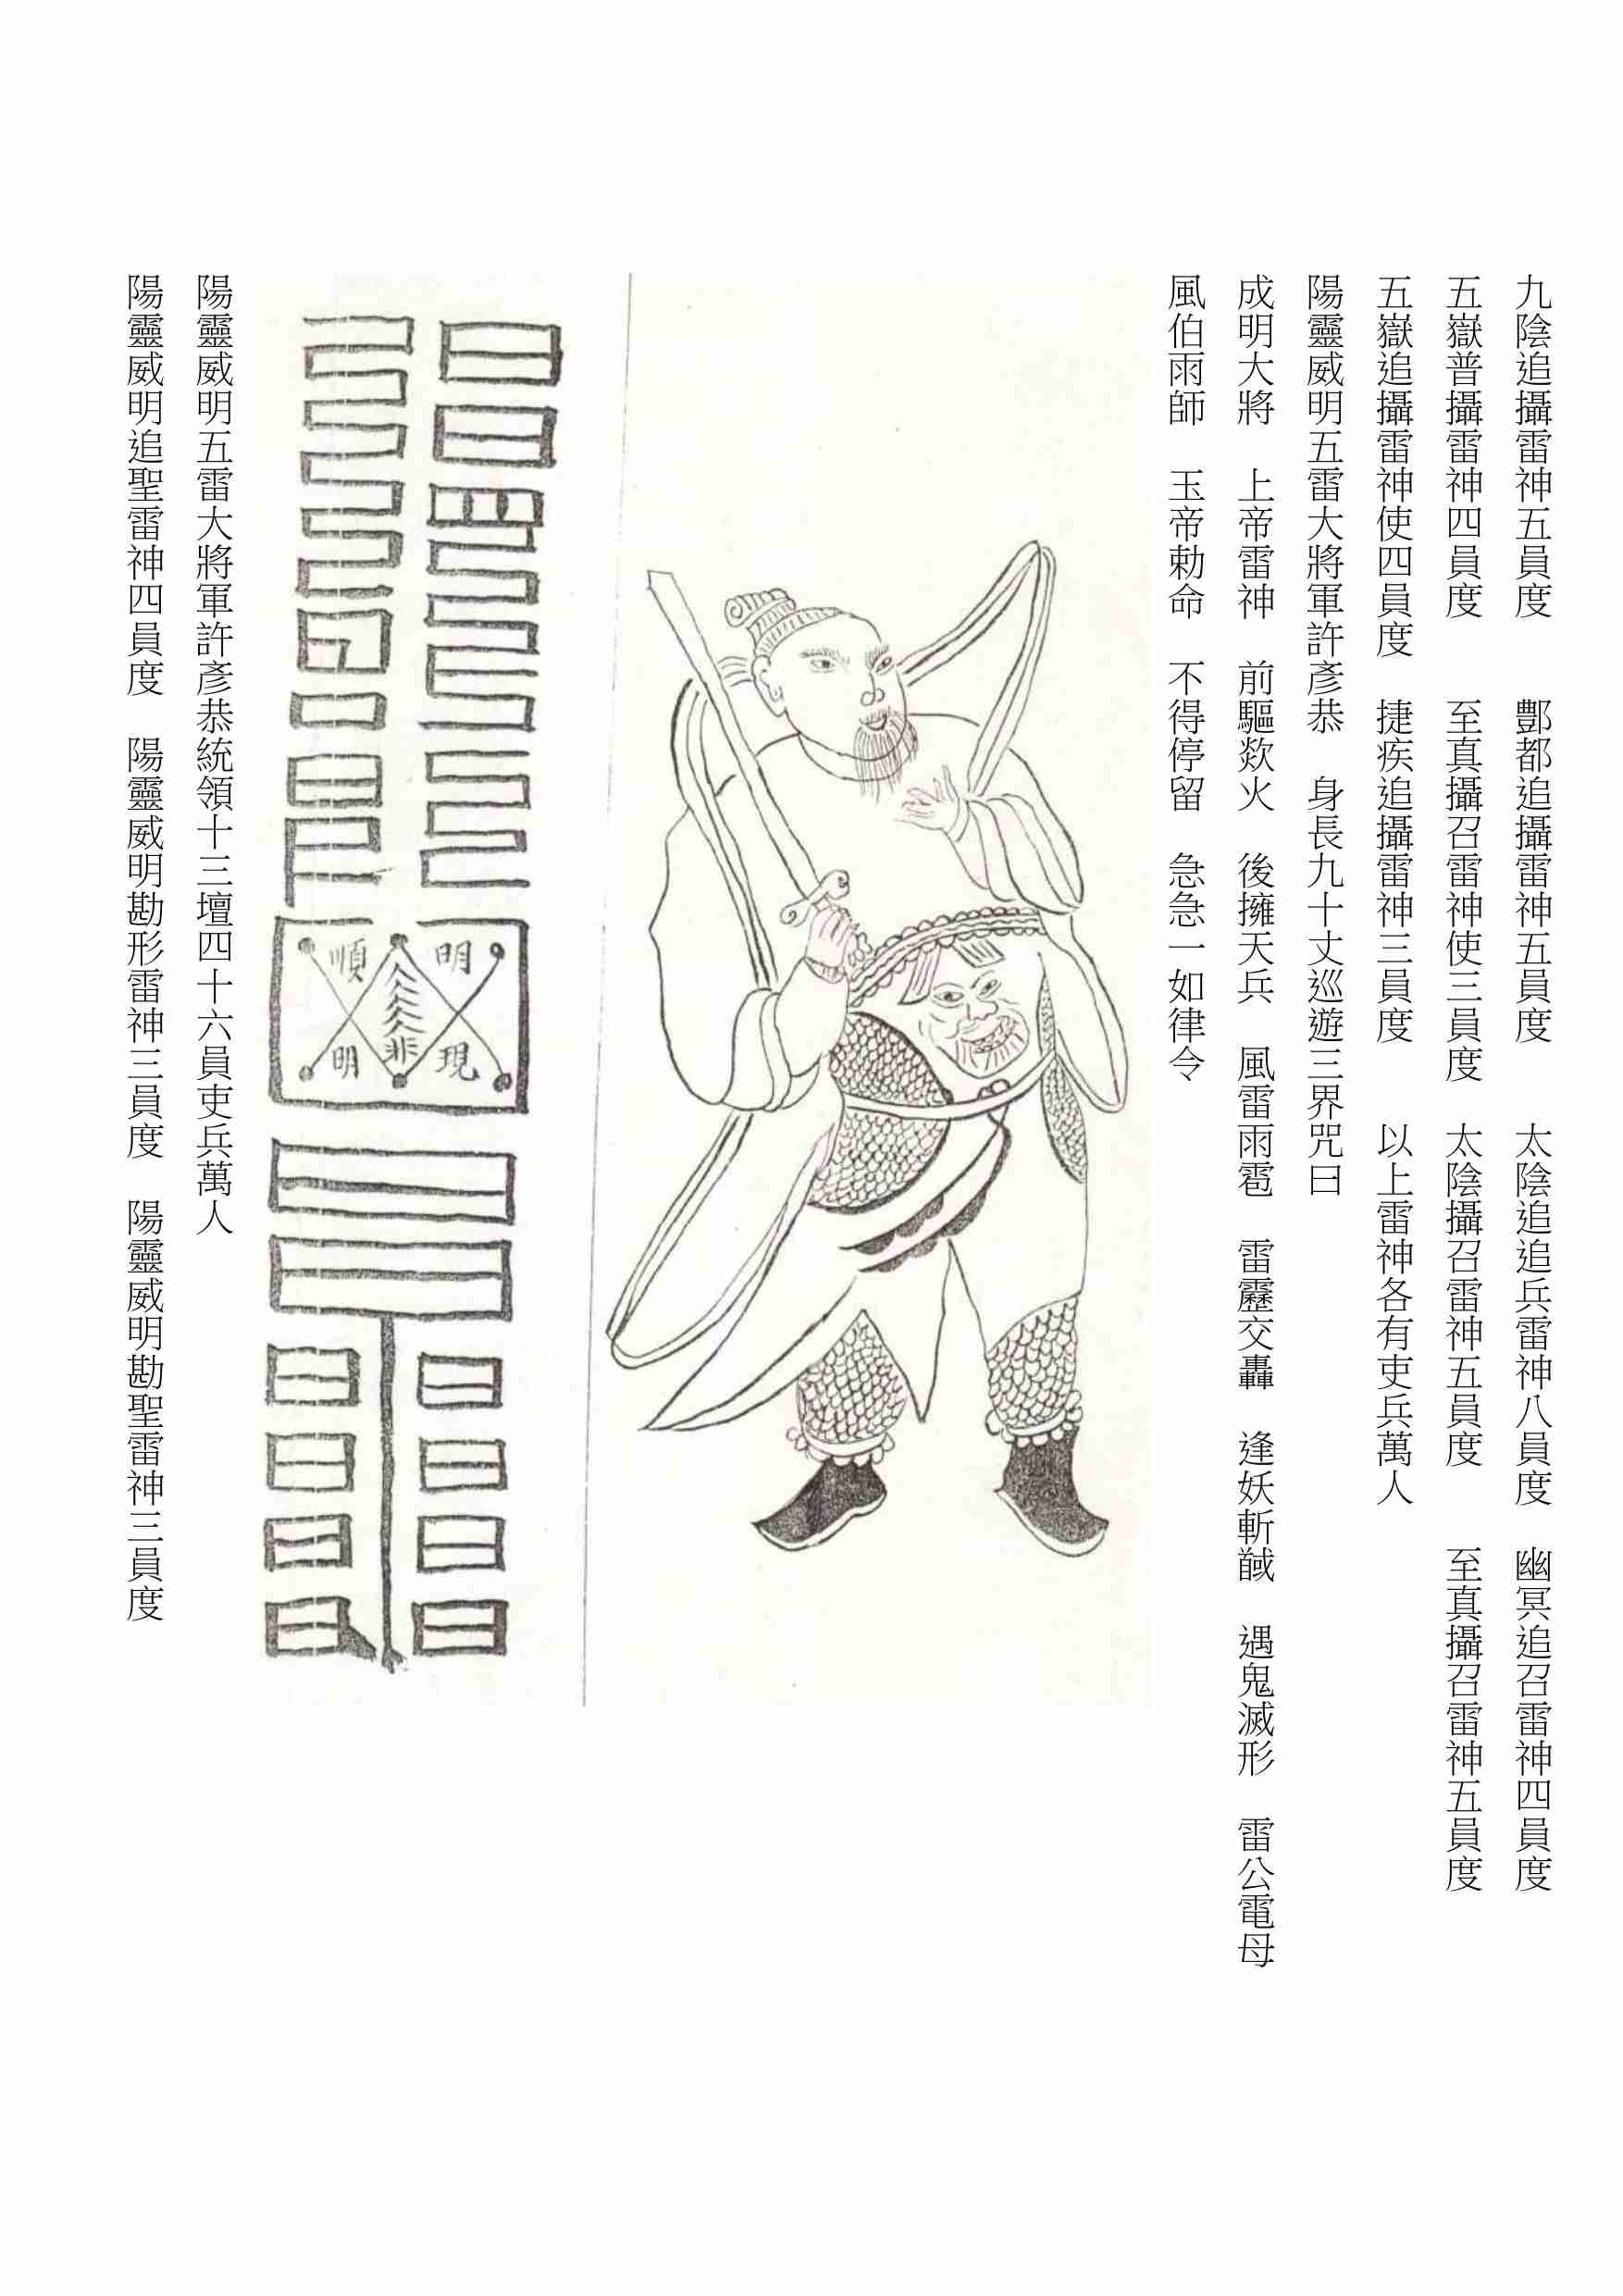 九陰追攝雷神五員度　酆都追攝雷神五員度　太陰追追兵雷神八員度　幽冥追召雷神四員度
五嶽普攝雷神四員度　至真攝召雷神使三員度　太陰攝召雷神五員度　至真攝召雷神五員度
五嶽追攝雷神使四員度　捷疾追攝雷神三員度　以上雷神各有吏兵萬人
陽靈威明五雷大將軍許彥恭　身長九十丈巡遊三界咒曰
成明大將　上帝雷神　前驅欻火　後擁天兵　風雷雨雹　雷靂交轟　逢妖斬馘　遇鬼滅形　雷公電母
風伯雨師　玉帝勅命　不得停留　急急一如律令
明
現
順
明
陽靈威明五雷大將軍許彥恭統領十三壇四十六員吏兵萬人
陽靈威明追聖雷神四員度　陽靈威明勘形雷神三員度　陽靈威明勘聖雷神三員度